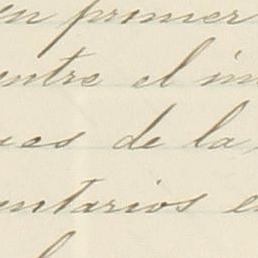 en primer
entre el in
ues de la
entarios e